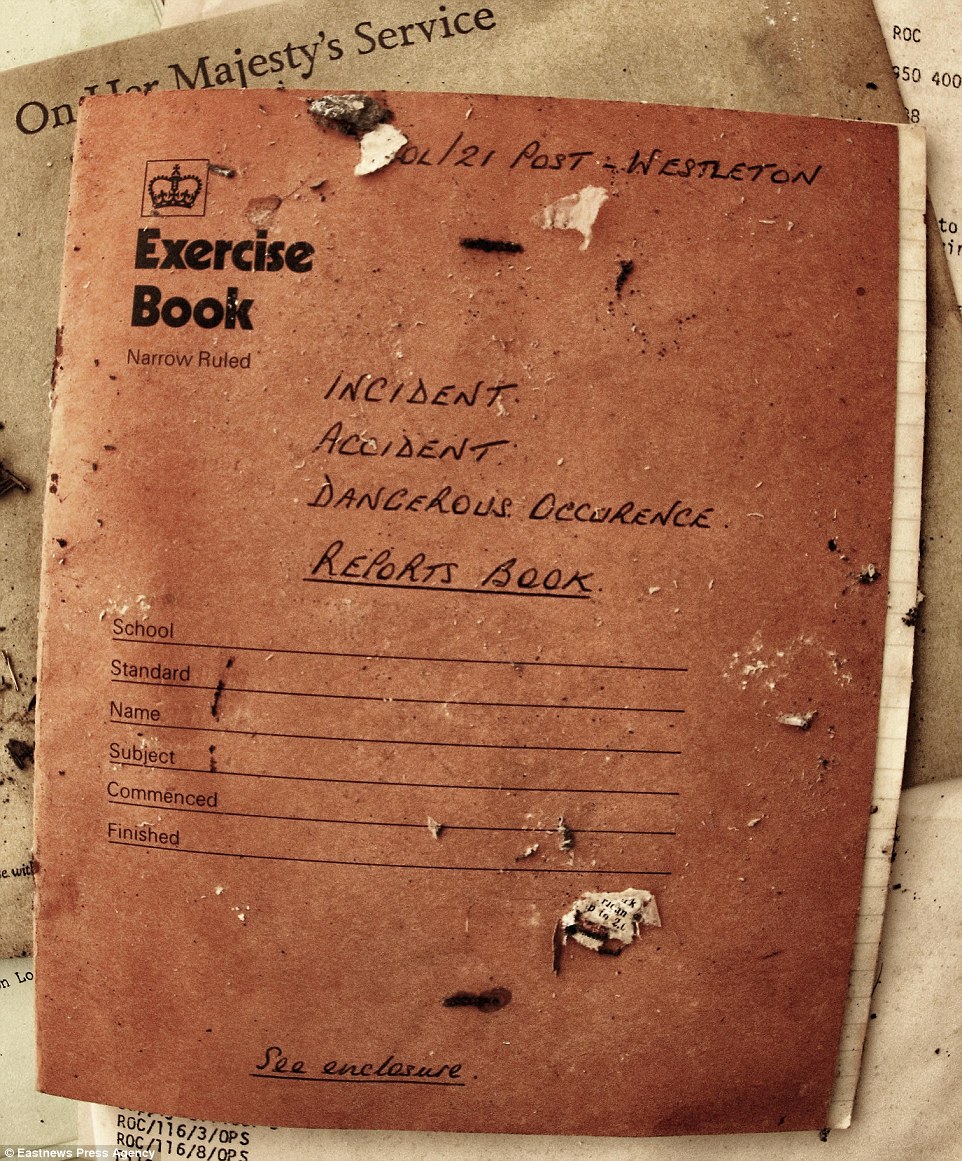 On Her Majesty's Service
ROC
950 400
38
OL/21 POST - WESTLETON
to
Exercise
Book
Narrow Ruled
INCIDENT.
ACCIDENT.
DANGEROUS OCCURENCE.
REPORTS BOOK.
School
Standard
Name
Subject
Commenced
Finished
rican
p to
See enclosure.
ROC/116/3/OPS
ROC/116/8/OPS
© Eastnews Press Agency